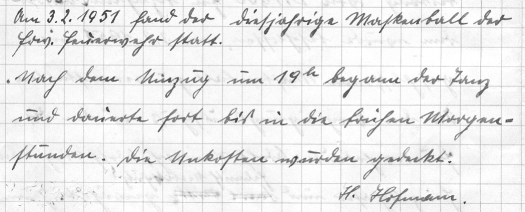 Am 3.2.1951 fand der diesjährige Maskenball der
Frw. Feuerwehr statt.
Nach dem Umzug um 19ʰ begann der Tanz
und dauerte fort bis in die frühen Morgen=
stunden. Die Unkosten wurden gedeckt.
H. Hofmann.